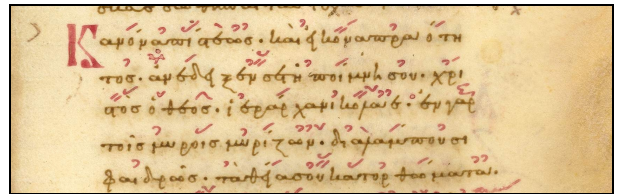 Κανόνα πίστεως · καὶ εἰκόνα πραότη
τος · ἀνέδειξέν σε τῆ ποίμνη σου · χρι
στὸς ὁ θεὸς · ἱεράρχα νικόλαε · ἐν γὰρ
τοῖς μύροις μυρίζων · διαλάμπουσι
φαιδρῶς · τὰ θεῖά σου κατορθώματα ·